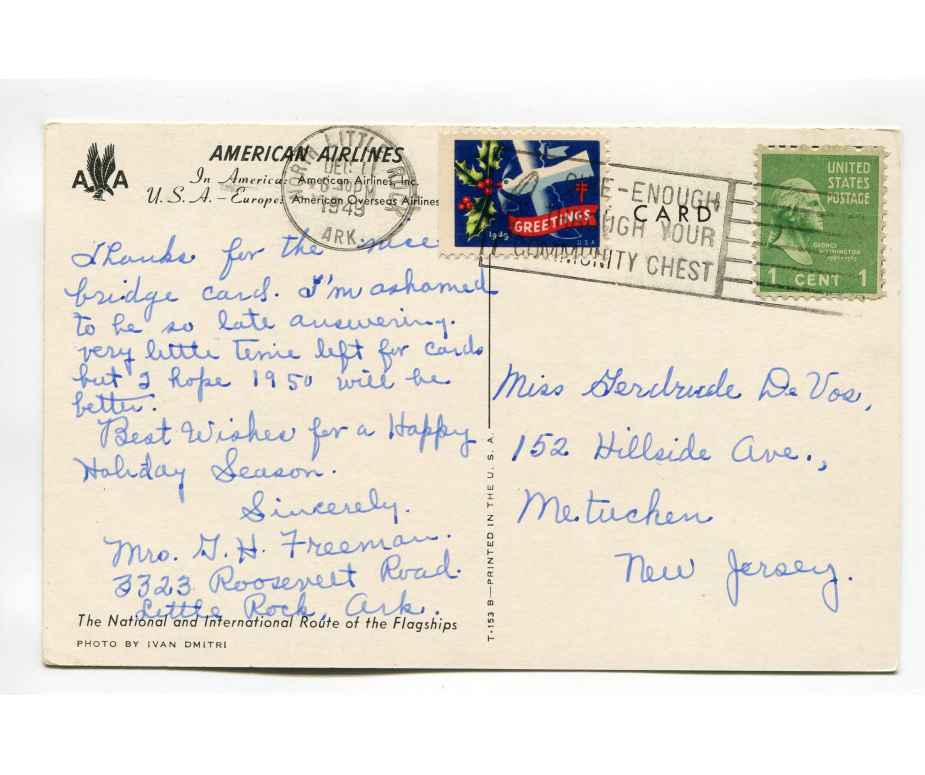 AMERICAN AIRLINES
In America: American Airlines, Inc.
U. S. A. – Europe: American Overseas Airlines
A A
LITTLE ROCK
DEC
1949
ARK.
GREETINGS
1949
U.S.A.
GIVE-ENOUGH
THROUGH YOUR
COMMUNITY CHEST
CARD
UNITED
STATES
POSTAGE
GEORGE
WASHINGTON
1 CENT 1
Thanks for the nice
bridge card. I'm ashamed
to be so late answering.
very little time left for cards
but I hope 1950 will be
better.
Best Wishes for a Happy
Holiday Season.
Sincerely.
Mrs. G. H. Freeman.
3323 Roosevelt Road.
Little Rock, Ark.
The National and International Route of the Flagships
PHOTO BY IVAN DMITRI
T-153 B—PRINTED IN THE U. S. A.
Miss Gerdrude De Vos,
152 Hillside Ave.,
Metuchen
New Jersey.